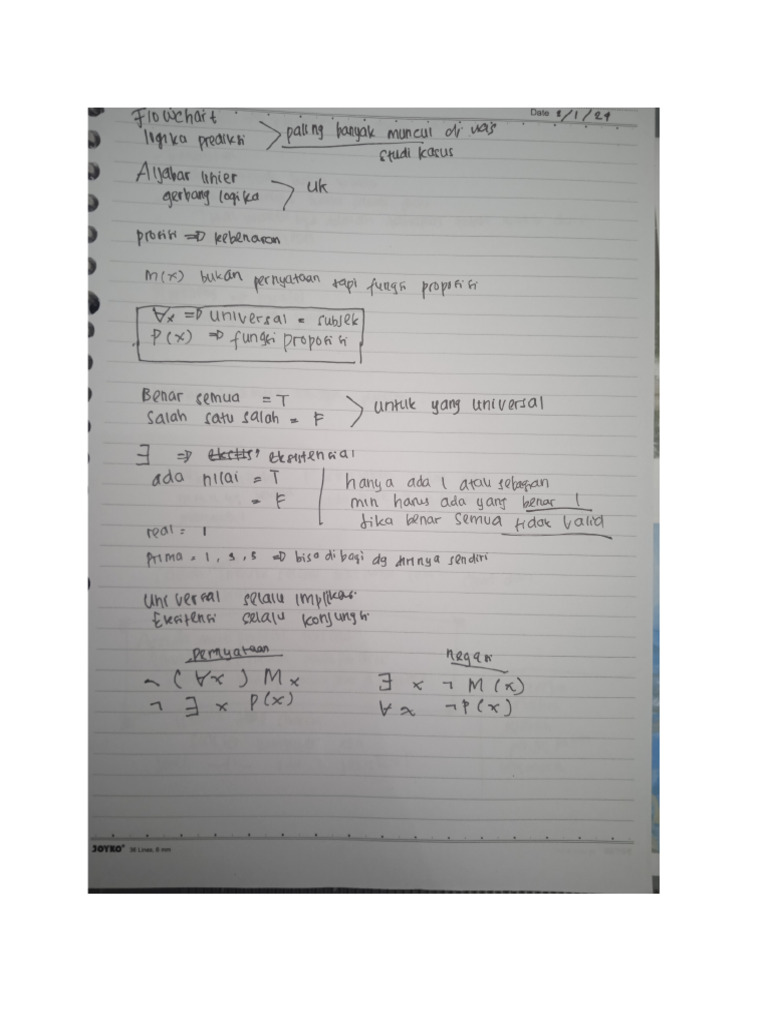 Flowchart
Date 2/1/24
logika prediksi > paling banyak muncul di uas
studi kasus
Aljabar linier
gerbang logika > UK
proposisi => kebenaran
M(x) bukan pernyataan tapi fungsi proposisi
∀x => universal = subjek
P(x) => fungsi proposisi
Benar semua = T
Salah satu salah = F > untuk yang universal
∃ => eksistensial
ada nilai = T | hanya ada 1 atau sebagian
= F | min harus ada yang benar 1
Jika benar semua tidak valid
real = 1
Prima = 1, 3, 5 => bisa dibagi dg dirinya sendiri
Universal selalu implikasi
Eksistensi selalu konjungsi
pernyataan negasi
¬ (∀x) Mx ∃ x ¬ M(x)
¬ ∃ x P(x) ∀x ¬P(x)
JOYKO 36 Lines, 8 mm